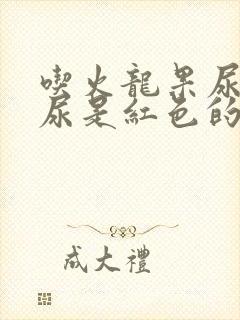 喫火龍果尿
尿是紅色的
成大禮